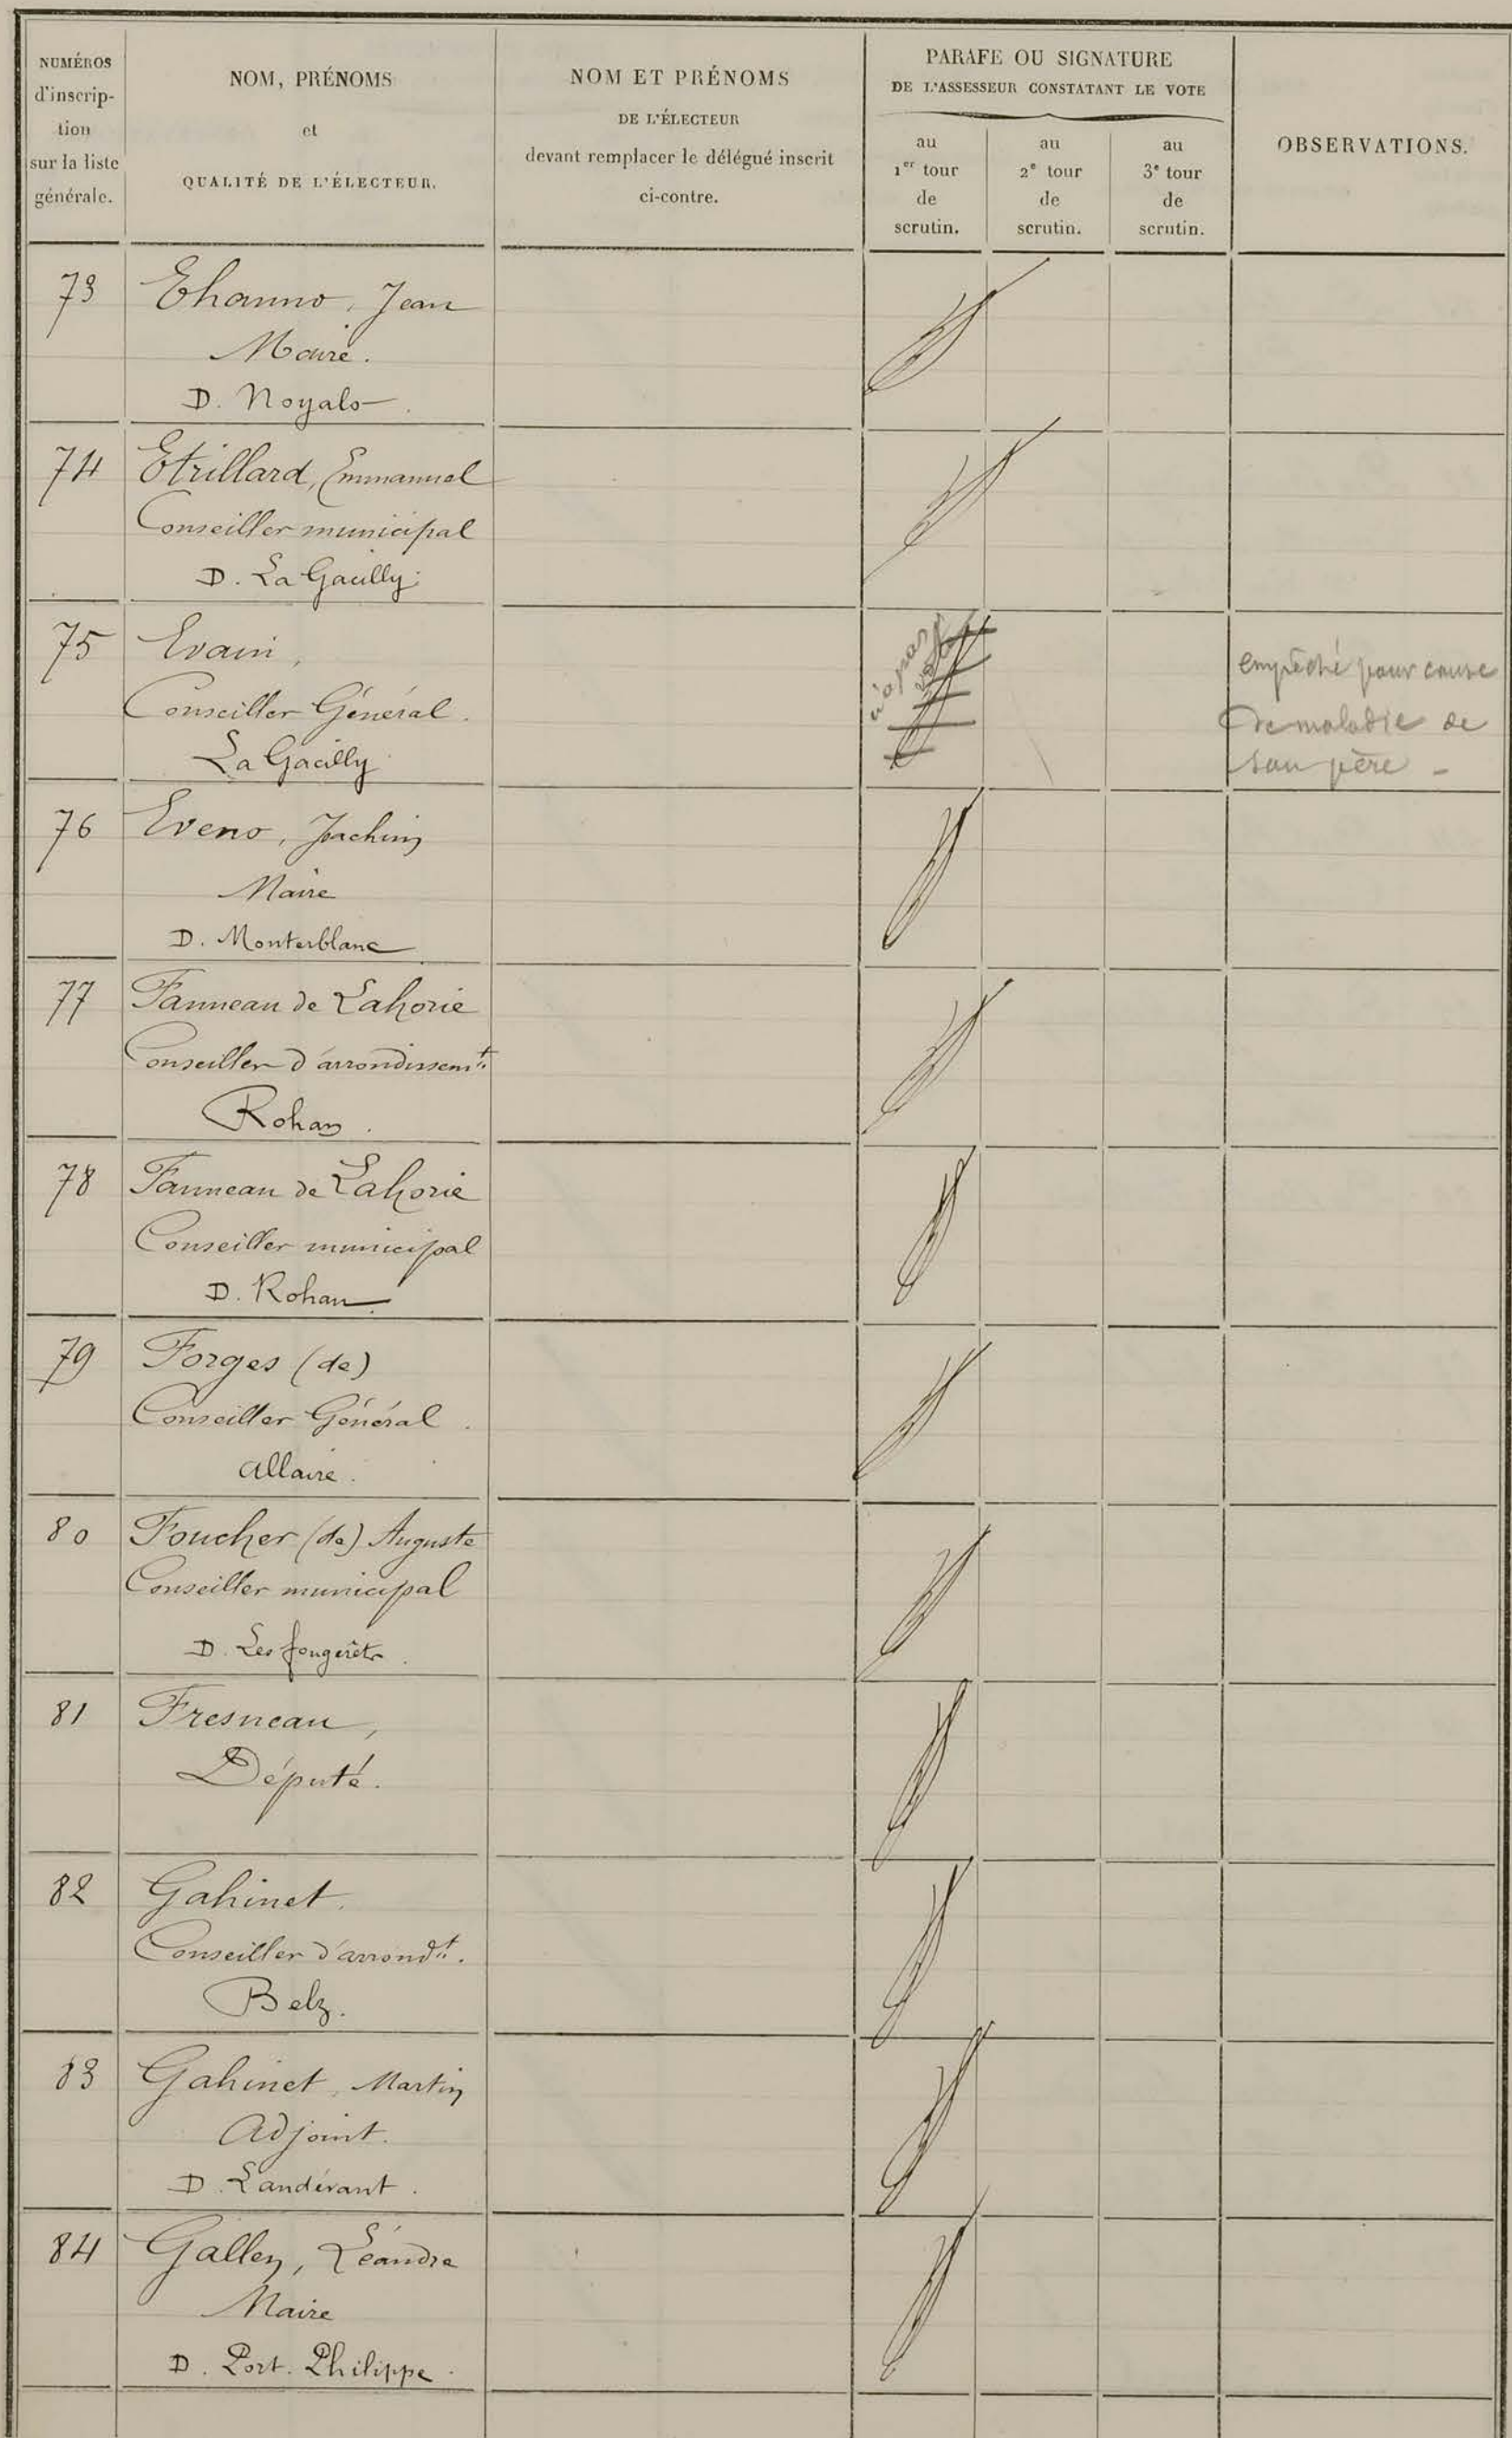 NUMÉROS
d'inscrip-
tion
sur la liste
générale.
NOM, PRÉNOMS
et
QUALITÉ DE L'ÉLECTEUR.
NOM ET PRÉNOMS
DE L'ÉLECTEUR
devant remplacer le délégué inscrit
ci-contre.
PARAFE OU SIGNATURE
DE L'ASSESSEUR CONSTATANT LE VOTE
au
1er tour
de
scrutin.
au
2e tour
de
scrutin.
au
3e tour
de
scrutin.
OBSERVATIONS.
73 Ehanno, Jean
Maire.
D. Noyalo.
74 Etrillard, Emmanuel
Conseiller municipal
D. La Gacilly.
75 Evain,
Conseiller Général.
La Gacilly
n'a pas
voté
empêché pour cause
de maladie de
son père -
76 Eveno, Joachim
Maire
D. Monterblanc
77 Fanneau de Lahorie
Conseiller d'arrondissemt.
Rohan.
78 Fanneau de Lahorie
Conseiller municipal
D. Rohan.
79 Forges (de)
Conseiller Général.
Allaire.
80 Foucher (de) Auguste
Conseiller municipal
D. Les fougerêts.
81 Fresneau,
Député.
82 Gahinet.
Conseiller d'arrondt.
Belz.
83 Gahinet, Martin
Adjoint.
D. Landévant.
84 Gallen, Léandre
Maire
D. Port. Philippe.